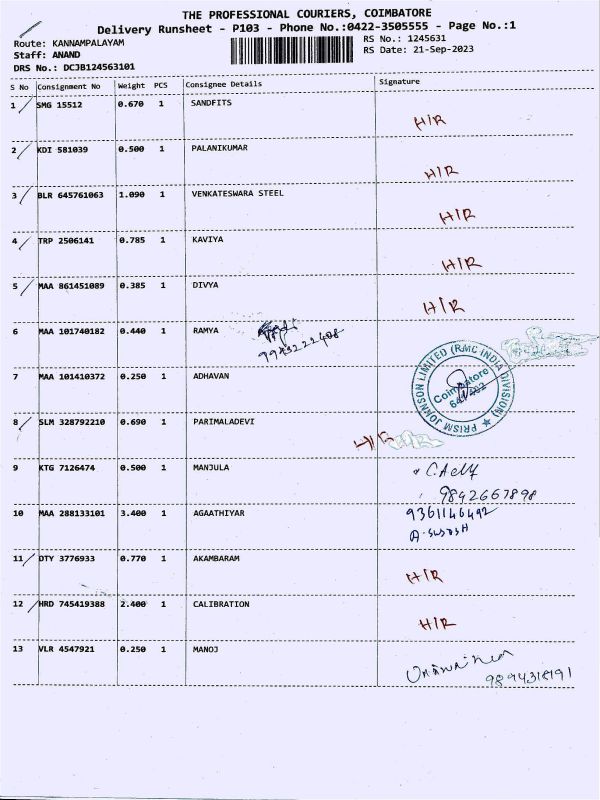 THE PROFESSIONAL COURIERS, COIMBATORE
Delivery Runsheet - P103 - Phone No.:0422-3505555 - Page No.:1
Route: KANNAMPALAYAM RS No.: 1245631
Staff: ANAND RS Date: 21-Sep-2023
DRS No.: DCJB124563101
S No Consignment No Weight PCS Consignee Details Signature
1 SMG 15512 0.670 1 SANDFITS
H/R
2 KDI 581039 0.500 1 PALANIKUMAR
H/R
3 BLR 645761063 1.090 1 VENKATESWARA STEEL
H/R
4 TRP 2506141 0.785 1 KAVIYA
H/R
5 MAA 861451089 0.385 1 DIVYA
H/R
6 MAA 101740182 0.440 1 RAMYA
7 MAA 101410372 0.250 1 ADHAVAN
PRISM JOHNSON LIMITED (RMC INDIA DIVISION) ★
Coimbatore
8 SLM 328792210 0.690 1 PARIMALADEVI
H/R
9 KTG 7126474 0.500 1 MANJULA
9842667898
10 MAA 288133101 3.400 1 AGAATHIYAR 9361146492
11 DTY 3776933 0.770 1 AKAMBARAM
H/R
12 HRD 745419388 2.400 1 CALIBRATION
H/R
13 VLR 4547921 0.250 1 MANOJ
9894318191